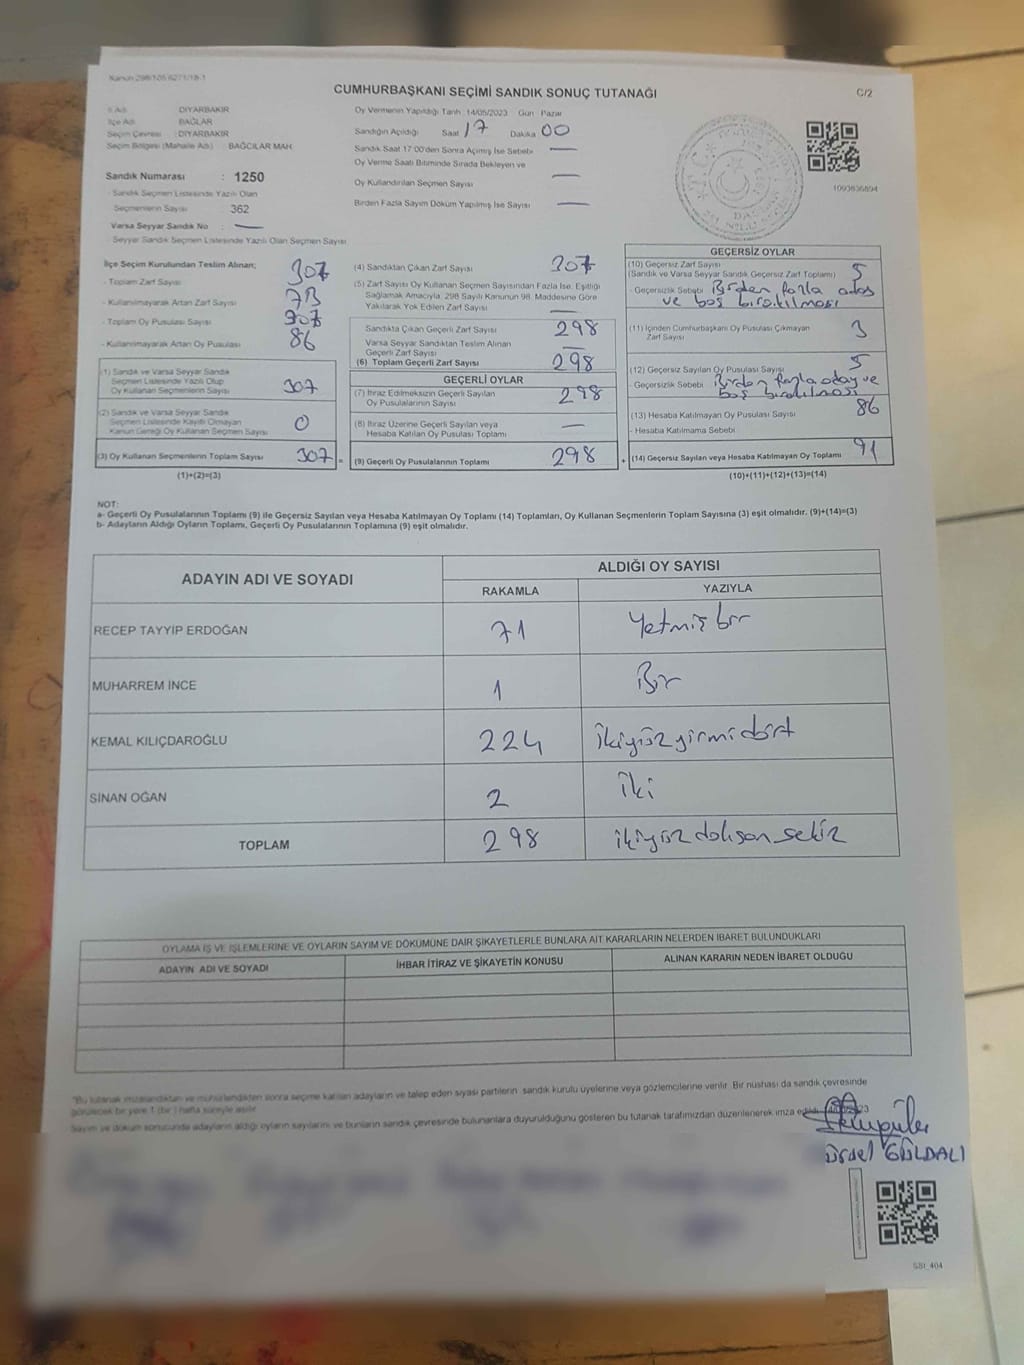 Kanun 298/105 6271/18-1
CUMHURBAŞKANI SEÇİMİ SANDIK SONUÇ TUTANAĞI
C/2
İl Adı : DİYARBAKIR
İlçe Adı : BAĞLAR
Seçim Çevresi : DİYARBAKIR
Seçim Bölgesi (Mahalle Adı) : BAĞCILAR MAH.
Sandık Numarası : 1250
- Sandık Seçmen Listesinde Yazılı Olan
Seçmenlerin Sayısı : 362
Varsa Seyyar Sandık No : —
- Seyyar Sandık Seçmen Listesinde Yazılı Olan Seçmen Sayısı
Oy Vermenin Yapıldığı Tarih :14/05/2023 Gün : Pazar
Sandığın Açıldığı Saat 17 Dakika 00
Sandık Saat 17:00'den Sonra Açılmış İse Sebebi —
Oy Verme Saati Bitiminde Sırada Bekleyen ve
Oy Kullandırılan Seçmen Sayısı —
Birden Fazla Sayım Döküm Yapılmış İse Sayısı —
1093836894
İlçe Seçim Kurulundan Teslim Alınan;
- Toplam Zarf Sayısı 307
- Kullanılmayarak Artan Zarf Sayısı 73
- Toplam Oy Pusulası Sayısı 307
- Kullanılmayarak Artan Oy Pusulası 86
(1) Sandık ve Varsa Seyyar Sandık
Seçmen Listesinde Yazılı Olup
Oy Kullanan Seçmenlerin Sayısı 307
(2) Sandık ve Varsa Seyyar Sandık
Seçmen Listesinde Kayıtlı Olmayan
Kanun Gereği Oy Kullanan Seçmen Sayısı 0
(3) Oy Kullanan Seçmenlerin Toplam Sayısı 307 =
(1)+(2)=(3)
(4) Sandıktan Çıkan Zarf Sayısı 307
(5) Zarf Sayısı Oy Kullanan Seçmen Sayısından Fazla İse, Eşitliği
Sağlamak Amacıyla, 298 Sayılı Kanunun 98. Maddesine Göre
Yakılarak Yok Edilen Zarf Sayısı —
Sandıkta Çıkan Geçerli Zarf Sayısı 298
Varsa Seyyar Sandıktan Teslim Alınan
Geçerli Zarf Sayısı —
(6) Toplam Geçerli Zarf Sayısı 298
GEÇERLİ OYLAR
(7) İtiraz Edilmeksizin Geçerli Sayılan
Oy Pusulalarının Sayısı 298
(8) İtiraz Üzerine Geçerli Sayılan veya
Hesaba Katılan Oy Pusulası Toplamı —
(9) Geçerli Oy Pusulalarının Toplamı 298 +
GEÇERSİZ OYLAR
(10) Geçersiz Zarf Sayısı
(Sandık ve Varsa Seyyar Sandık Geçersiz Zarf Toplamı) 5
- Geçersizlik Sebebi Birden fazla aday
ve boş bırakılması
(11) İçinden Cumhurbaşkanı Oy Pusulası Çıkmayan
Zarf Sayısı 3
(12) Geçersiz Sayılan Oy Pusulası Sayısı 5
- Geçersizlik Sebebi Birden fazla aday ve
boş bırakılması
(13) Hesaba Katılmayan Oy Pusulası Sayısı 86
- Hesaba Katılmama Sebebi
(14) Geçersiz Sayılan veya Hesaba Katılmayan Oy Toplamı 91
(10)+(11)+(12)+(13)=(14)
NOT:
a- Geçerli Oy Pusulalarının Toplamı (9) ile Geçersiz Sayılan veya Hesaba Katılmayan Oy Toplamı (14) Toplamları, Oy Kullanan Seçmenlerin Toplam Sayısına (3) eşit olmalıdır. (9)+(14)=(3)
b- Adayların Aldığı Oyların Toplamı, Geçerli Oy Pusulalarının Toplamına (9) eşit olmalıdır.
ADAYIN ADI VE SOYADI
ALDIĞI OY SAYISI
RAKAMLA YAZIYLA
RECEP TAYYİP ERDOĞAN 71 Yetmiş bir
MUHARREM İNCE 1 Bir
KEMAL KILIÇDAROĞLU 224 İkiyüz yirmi dört
SİNAN OĞAN 2 İki
TOPLAM 298 ikiyüz doksan sekiz
OYLAMA İŞ VE İŞLEMLERİNE VE OYLARIN SAYIM VE DÖKÜMÜNE DAİR ŞİKAYETLERLE BUNLARA AİT KARARLARIN NELERDEN İBARET BULUNDUKLARI
ADAYIN ADI VE SOYADI İHBAR İTİRAZ VE ŞİKAYETİN KONUSU ALINAN KARARIN NEDEN İBARET OLDUĞU
"Bu tutanak imzalandıktan ve mühürlendikten sonra seçime katılan adayların ve talep eden siyasi partilerin sandık kurulu üyelerine veya gözlemcilerine verilir. Bir nüshası da sandık çevresinde
görülecek bir yere 1 (bir ) hafta süreyle asılır.
Sayım ve döküm sonucunda adayların aldığı oyların sayılarını ve bunların sandık çevresinde bulunanlara duyurulduğunu gösteren bu tutanak tarafımızdan düzenlenerek imza edildi.
GÜLDALI
SBI_404